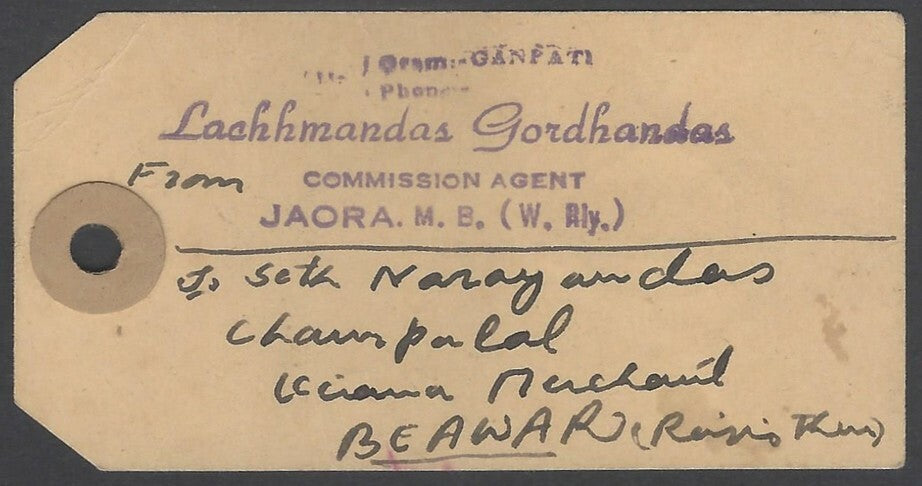 Gram:-GANPATI
Phone-
Lachhmandas Gordhandas
From COMMISSION AGENT
JAORA. M. B. (W. Rly.)
To Seth Narayandas
Champalal
Kirana Merchant
BEAWAR (Rajisthan)